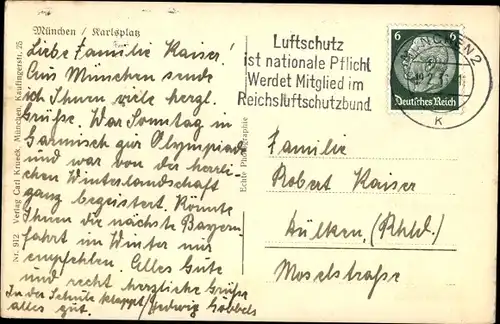 München / Karlsplatz
Liebe Familie Kaiser!
Aus München sende
ich Ihnen viele herzl.
Grüße. War Sonntag in
Garmisch zur Olympiade
und war von der herrli-
chen Winterlandschaft
ganz begeistert. Könnte
Ihnen die nächste Bayern-
fahrt im Winter nur
empfehlen. Alles Gute
und recht herzliche Grüße
In der Schule klappt / Hedwig Göbbels
alles gut.
Nr. 912 Verlag Carl Krueck, München, Kaufingerstr. 25
Echte Photographie
Luftschutz
ist nationale Pflicht
Werdet Mitglied im
Reichsluftschutzbund
6 6
Deutsches Reich
MÜNCHEN 2
K
Familie
Robert Kaiser
Dülken, (Rhld.)
Moselstraße